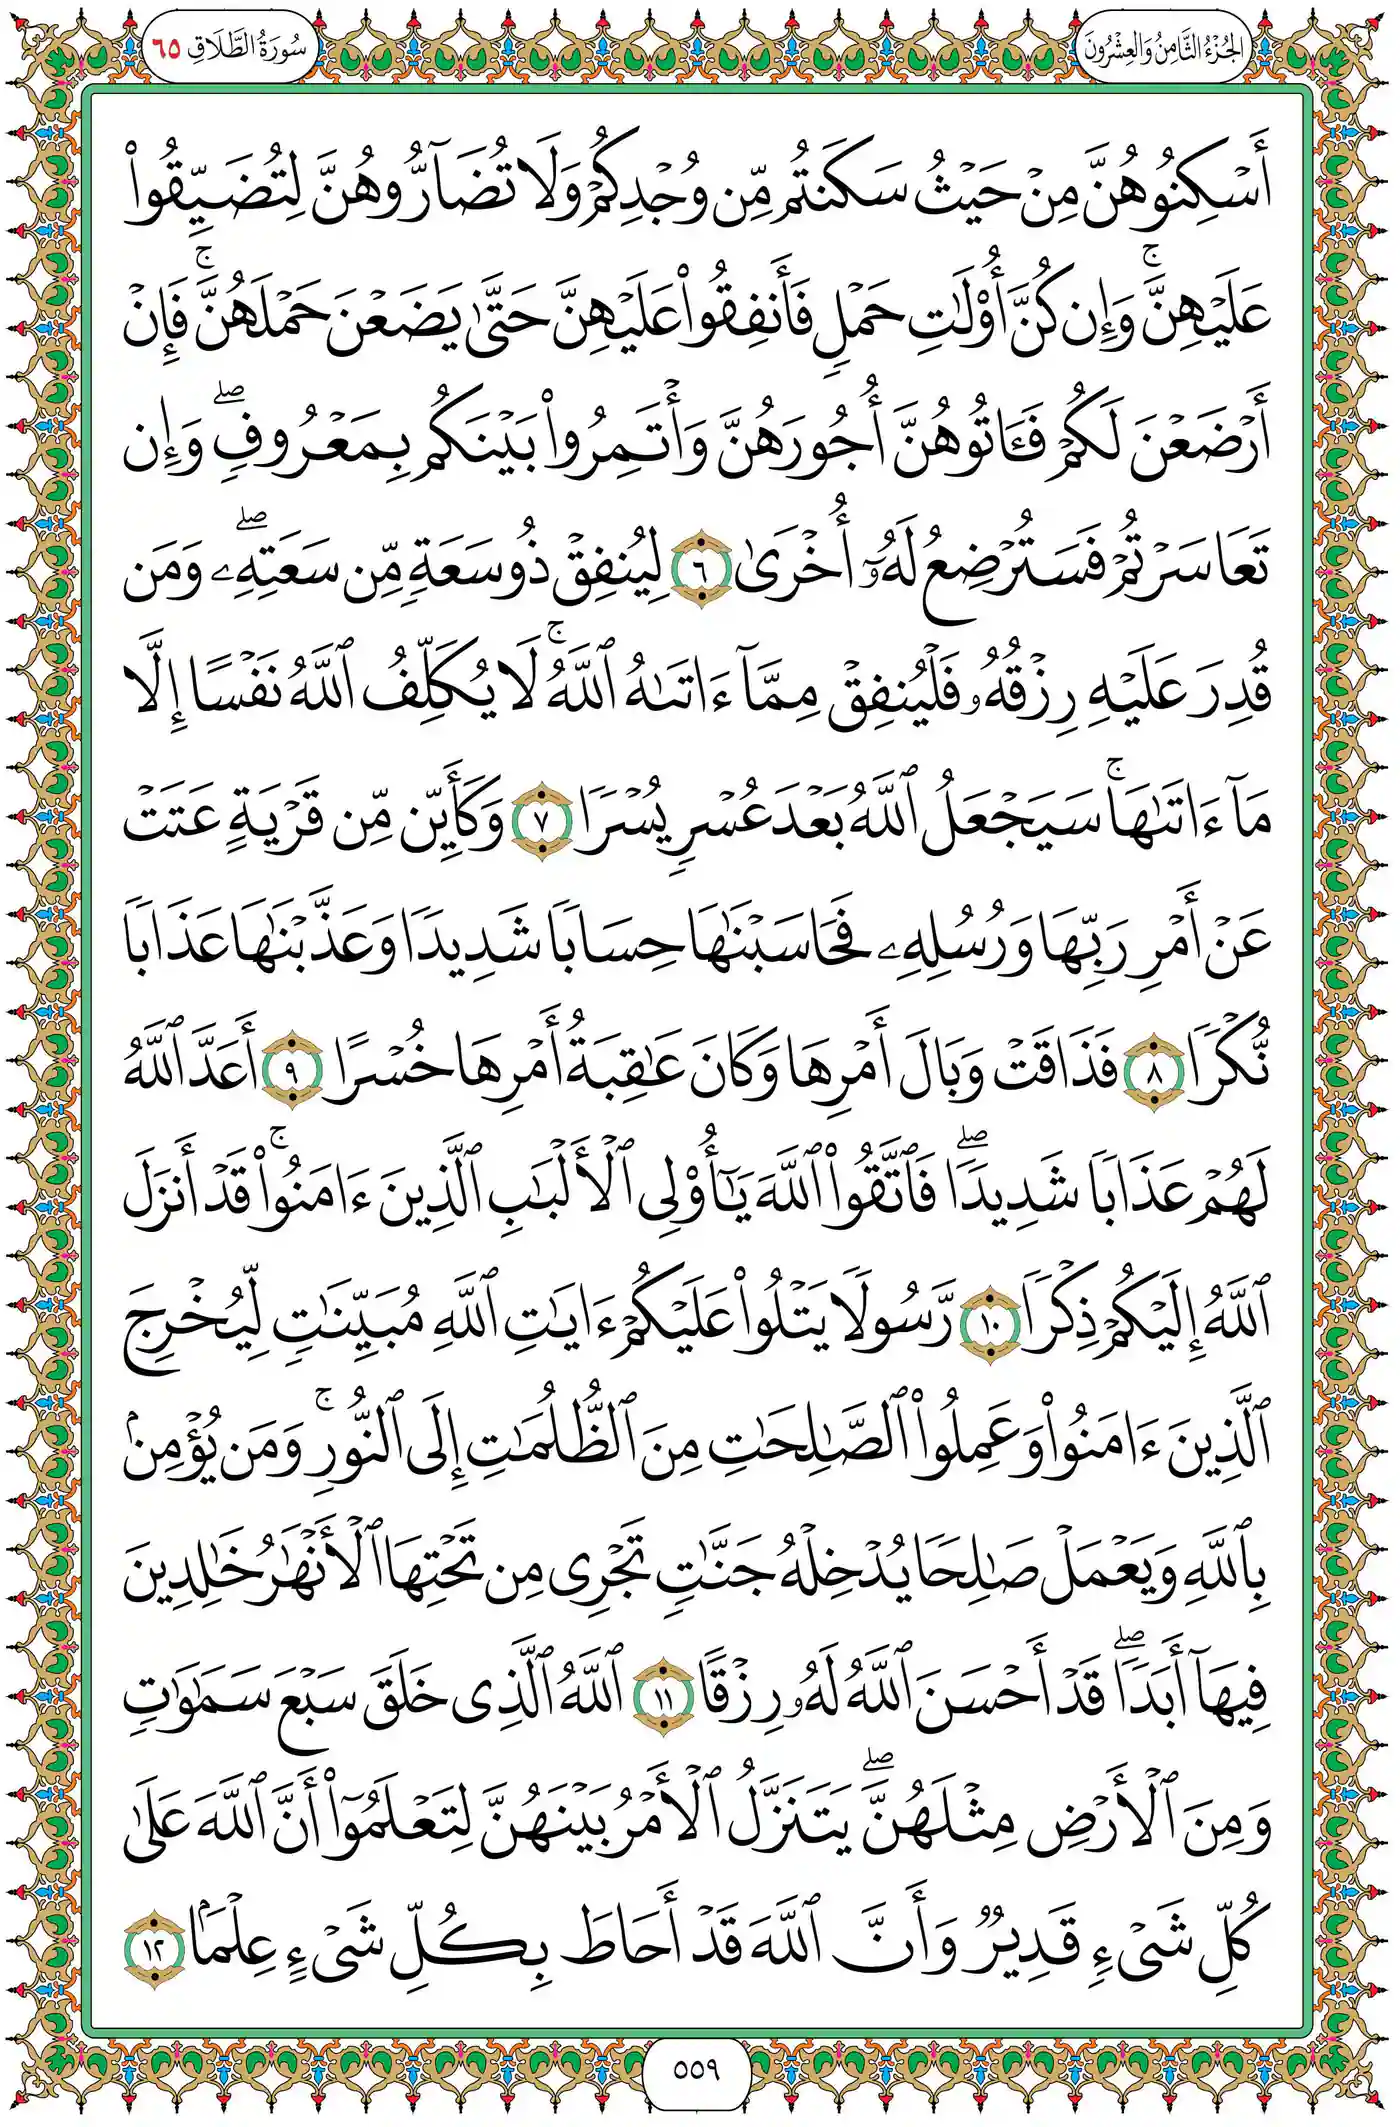 الجُزْءُ الثَّامِنُ وَالعِشْرُونَ
سُورَةُ الطَّلَاقِ ٦٥
أَسْكِنُوهُنَّ مِنْ حَيْثُ سَكَنتُم مِّن وُجْدِكُمْ وَلَا تُضَآرُّوهُنَّ لِتُضَيِّقُوا۟
عَلَيْهِنَّ ۚ وَإِن كُنَّ أُو۟لَٰتِ حَمْلٍ فَأَنفِقُوا۟ عَلَيْهِنَّ حَتَّىٰ يَضَعْنَ حَمْلَهُنَّ ۚ فَإِنْ
أَرْضَعْنَ لَكُمْ فَـَٔاتُوهُنَّ أُجُورَهُنَّ وَأْتَمِرُوا۟ بَيْنَكُم بِمَعْرُوفٍ ۖ وَإِن
تَعَاسَرْتُمْ فَسَتُرْضِعُ لَهُۥٓ أُخْرَىٰ ٦ لِيُنفِقْ ذُو سَعَةٍ مِّن سَعَتِهِۦ ۖ وَمَن
قُدِرَ عَلَيْهِ رِزْقُهُۥ فَلْيُنفِقْ مِمَّآ ءَاتَىٰهُ ٱللَّهُ ۚ لَا يُكَلِّفُ ٱللَّهُ نَفْسًا إِلَّا
مَآ ءَاتَىٰهَا ۚ سَيَجْعَلُ ٱللَّهُ بَعْدَ عُسْرٍ يُسْرًا ٧ وَكَأَيِّن مِّن قَرْيَةٍ عَتَتْ
عَنْ أَمْرِ رَبِّهَا وَرُسُلِهِۦ فَحَاسَبْنَٰهَا حِسَابًا شَدِيدًا وَعَذَّبْنَٰهَا عَذَابًا
نُّكْرًا ٨ فَذَاقَتْ وَبَالَ أَمْرِهَا وَكَانَ عَٰقِبَةُ أَمْرِهَا خُسْرًا ٩ أَعَدَّ ٱللَّهُ
لَهُمْ عَذَابًا شَدِيدًا ۖ فَٱتَّقُوا۟ ٱللَّهَ يَٰٓأُو۟لِى ٱلْأَلْبَٰبِ ٱلَّذِينَ ءَامَنُوا۟ ۚ قَدْ أَنزَلَ
ٱللَّهُ إِلَيْكُمْ ذِكْرًا ١٠ رَّسُولًا يَتْلُوا۟ عَلَيْكُمْ ءَايَٰتِ ٱللَّهِ مُبَيِّنَٰتٍ لِّيُخْرِجَ
ٱلَّذِينَ ءَامَنُوا۟ وَعَمِلُوا۟ ٱلصَّٰلِحَٰتِ مِنَ ٱلظُّلُمَٰتِ إِلَى ٱلنُّورِ ۚ وَمَن يُؤْمِنۢ
بِٱللَّهِ وَيَعْمَلْ صَٰلِحًا يُدْخِلْهُ جَنَّٰتٍ تَجْرِى مِن تَحْتِهَا ٱلْأَنْهَٰرُ خَٰلِدِينَ
فِيهَآ أَبَدًا ۖ قَدْ أَحْسَنَ ٱللَّهُ لَهُۥ رِزْقًا ١١ ٱللَّهُ ٱلَّذِى خَلَقَ سَبْعَ سَمَٰوَٰتٍ
وَمِنَ ٱلْأَرْضِ مِثْلَهُنَّ ۖ يَتَنَزَّلُ ٱلْأَمْرُ بَيْنَهُنَّ لِتَعْلَمُوٓا۟ أَنَّ ٱللَّهَ عَلَىٰ
كُلِّ شَىْءٍ قَدِيرٌ وَأَنَّ ٱللَّهَ قَدْ أَحَاطَ بِكُلِّ شَىْءٍ عِلْمًۢا ١٢
٥٥٩